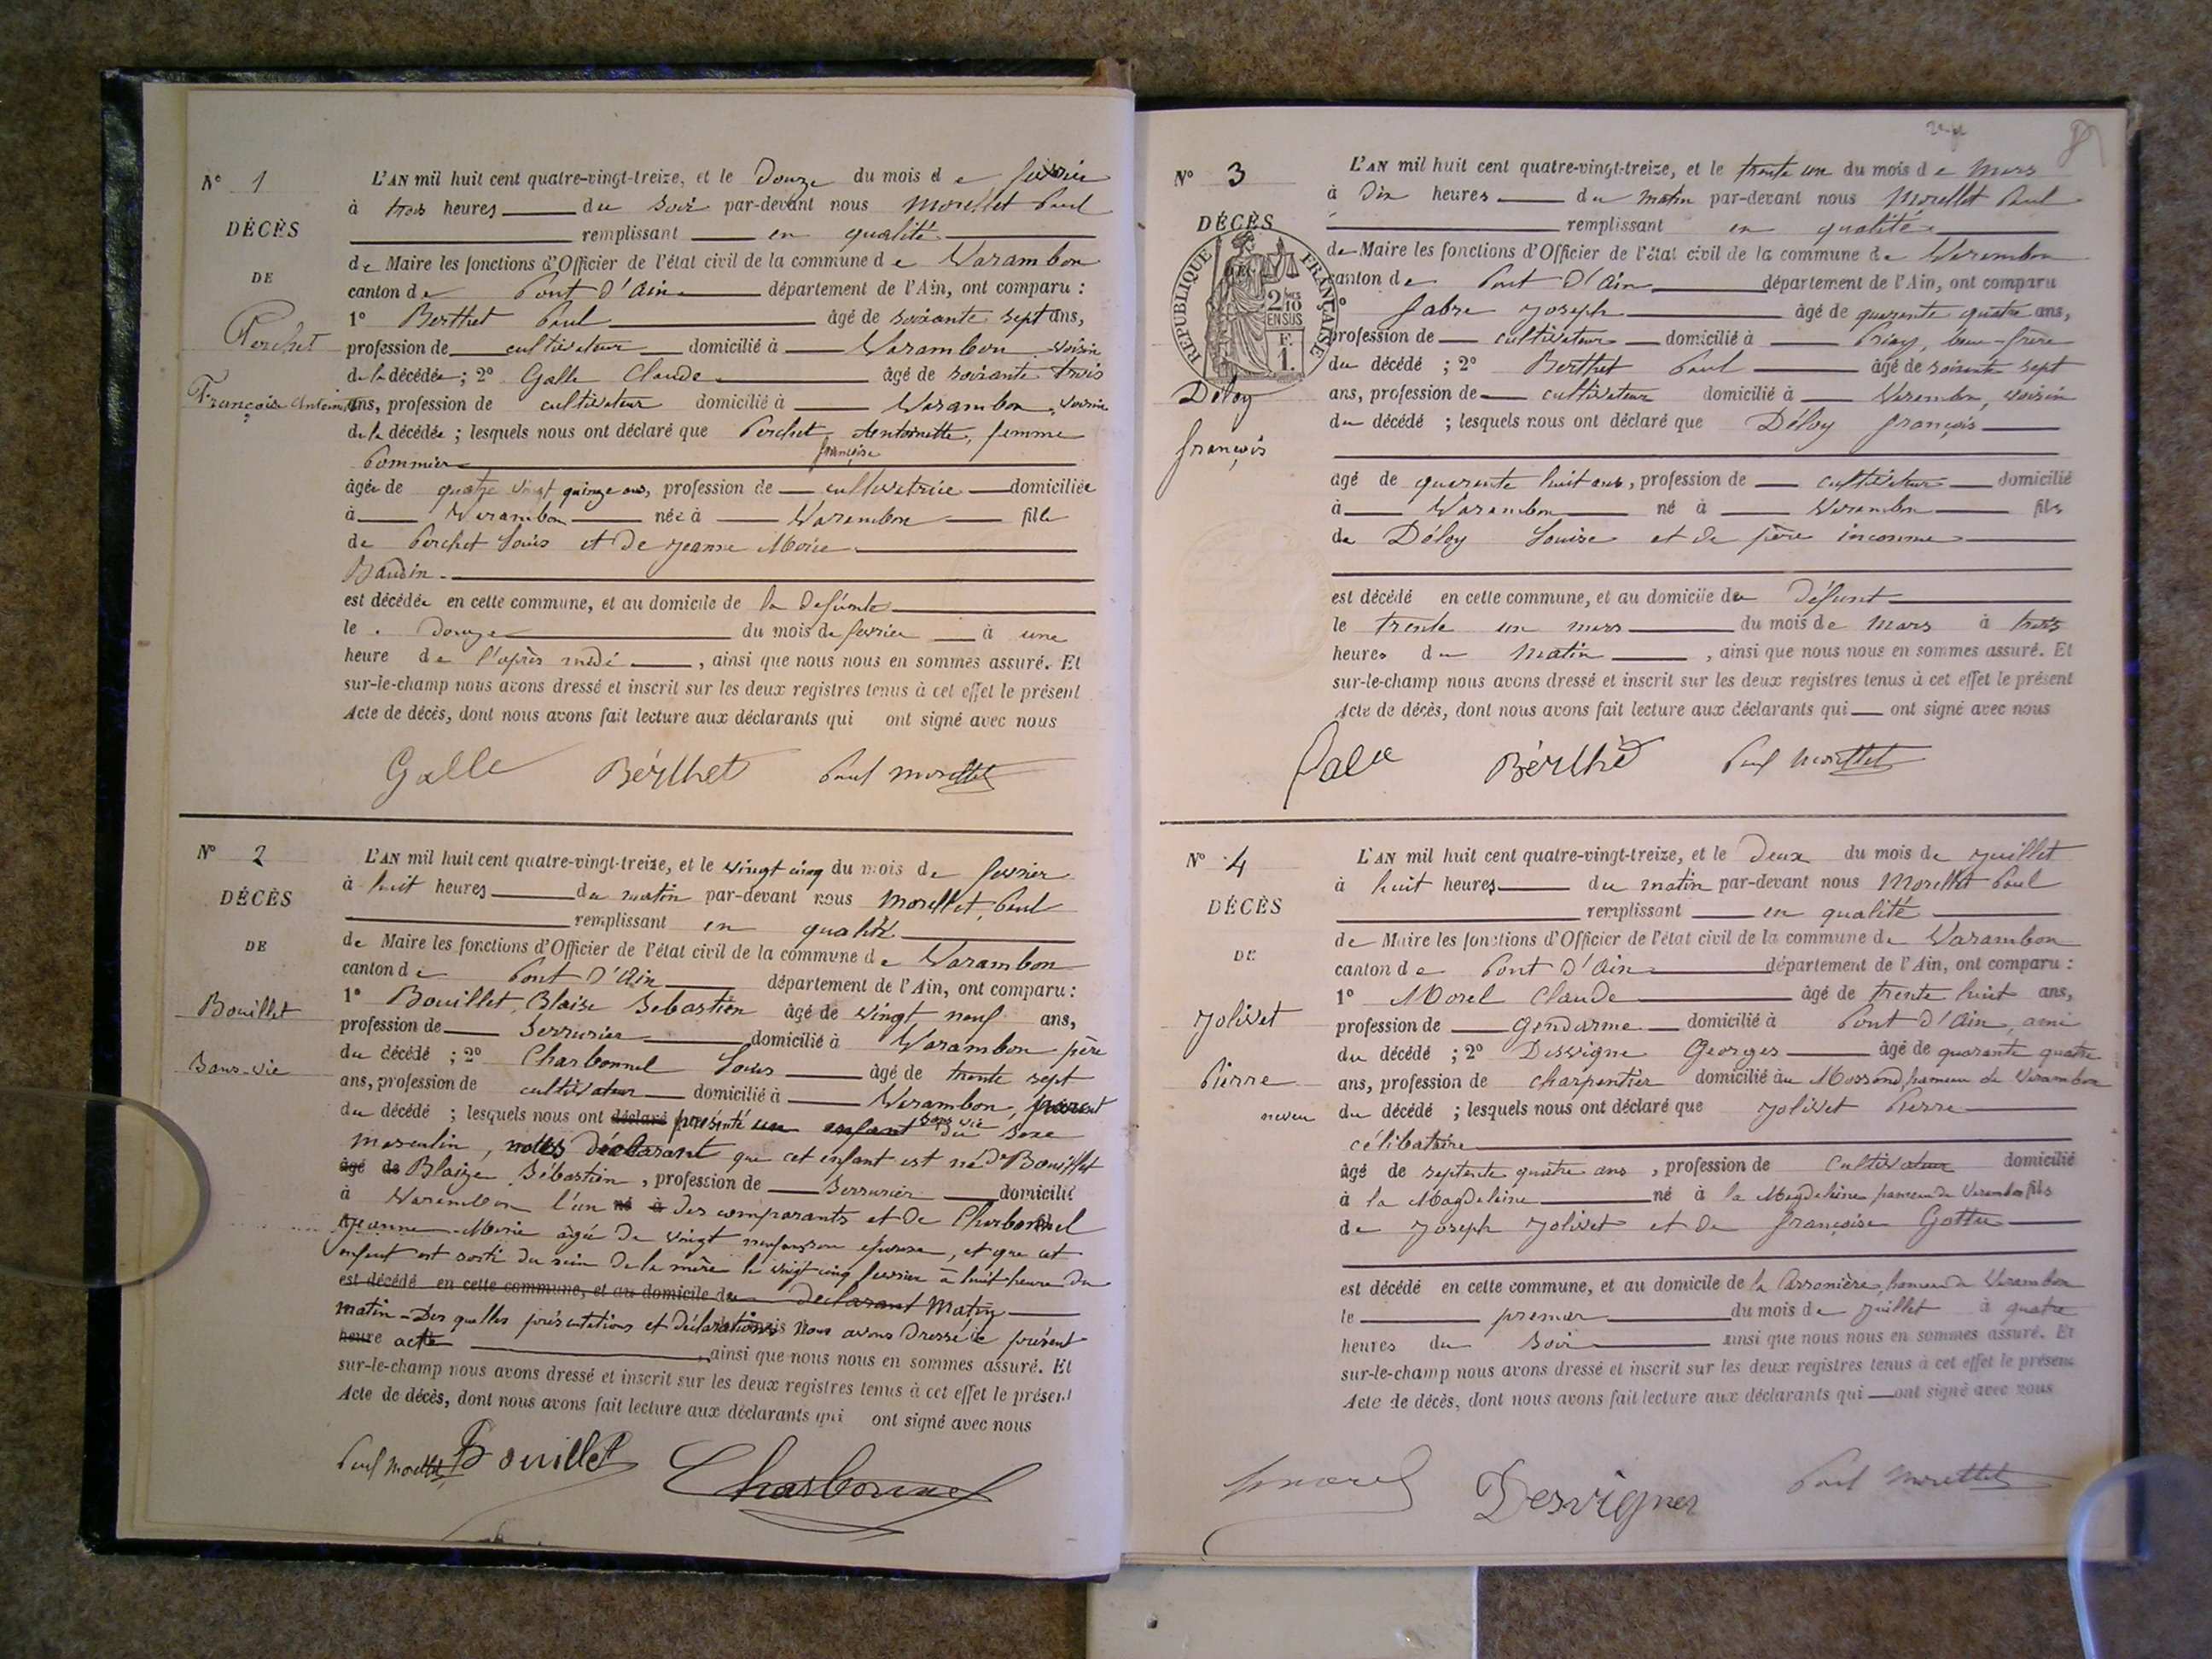 N° 1
DÉCÈS
DE
Perchet
Françoise Antoinette
L'AN mil huit cent quatre-vingt-treize, et le Douze du mois de février
à trois heures du soir par-devant nous Morellet Paul
remplissant en qualité
de Maire les fonctions d'Officier de l'état civil de la commune de Varambon
canton de Pont d'Ain département de l'Ain, ont comparu :
1° Berthet Paul âgé de soixante sept ans,
profession de cultivateur domicilié à Varambon voisin
de la décédée ; 2° Galle Claude âgé de soixante trois
ans, profession de cultivateur domicilié à Varambon, voisin
de la décédée ; lesquels nous ont déclaré que Perchet Antoinette, femme
Pommier françoise
âgée de quatre vingt quinze ans, profession de cultivatrice domiciliée
à Varambon née à Varambon fille
de Perchet Louis et de Jeanne Marie
Baudin
est décédée en cette commune, et au domicile de la défunte
le douze du mois de février à une
heure de l'après midi , ainsi que nous nous en sommes assuré. Et
sur-le-champ nous avons dressé et inscrit sur les deux registres tenus à cet effet le présent
Acte de décès, dont nous avons fait lecture aux déclarants qui ont signé avec nous
Galle Bérthet Paul Morellet
N° 2
DÉCÈS
DE
Bouillet
Sans-vie
L'AN mil huit cent quatre-vingt-treize, et le vingt cinq du mois de février
à huit heures du matin par-devant nous Morellet, Paul
remplissant en qualité
de Maire les fonctions d'Officier de l'état civil de la commune de Varambon
canton de Pont d'Ain département de l'Ain, ont comparu :
1° Bouillet, Blaise Sébastien âgé de vingt neuf ans,
profession de Serrurier domicilié à Varambon père
du décédé ; 2° Charbonnel Louis âgé de trente sept
ans, profession de cultivateur domicilié à Varambon, parent
du décédé ; lesquels nous ont déclaré présenté un enfant sans vie du sexe
masculin, nous déclarant que cet enfant est né de Bouillet
âgé de Blaize Sébastien, profession de Serrurier domicilié
à Varambon l'un né à des comparants et de Charbonnel
Jeanne-Marie âgée de vingt neuf ans son épouse, et que cet
enfant est sorti du sein de la mère le vingt cinq février à huit heure du
est décédé en cette commune, et au domicile du déclarant Matin
matin - Des quelles présentations et déclarations nous avons dressé le présent
heure acte , ainsi que nous nous en sommes assuré. Et
sur-le-champ nous avons dressé et inscrit sur les deux registres tenus à cet effet le présent
Acte de décès, dont nous avons fait lecture aux déclarants qui ont signé avec nous
Paul Morellet Bouillet Charbonnel
N° 3
DÉCÈS
RÉPUBLIQUE FRANÇAISE
2/10 EN SUS
F. 1.
Déloy
françois
L'AN mil huit cent quatre-vingt-treize, et le trente un du mois de Mars
à Dix heures du matin par-devant nous Morellet Paul
remplissant en qualité
de Maire les fonctions d'Officier de l'état civil de la commune de Varambon
canton de Pont d'Ain département de l'Ain, ont comparu
fabre Joseph âgé de quarante quatre ans,
profession de cultivateur domicilié à Priay, beau-frère
du décédé ; 2° Berthet Paul âgé de soixante sept
ans, profession de cultivateur domicilié à Varambon, voisin
du décédé ; lesquels nous ont déclaré que Déloy françois
âgé de quarante huit ans, profession de cultivateur domicilié
à Varambon né à Varambon fils
de Déloy Louise et de père inconnu
est décédé en cette commune, et au domicile du défunt
le trente un mars du mois de Mars à trois
heures du Matin , ainsi que nous nous en sommes assuré. Et
sur-le-champ nous avons dressé et inscrit sur les deux registres tenus à cet effet le présent
Acte de décès, dont nous avons fait lecture aux déclarants qui ont signé avec nous
Bérthé Paul Morellet
N° 4
DÉCÈS
DE
Jolivet
Pierre
L'AN mil huit cent quatre-vingt-treize, et le Deux du mois de Juillet
à huit heures du matin par-devant nous Morellet Paul
remplissant en qualité
de Maire les fonctions d'Officier de l'état civil de la commune de Varambon
canton de Pont d'Ain département de l'Ain, ont comparu :
1° Morel Claude âgé de trente huit ans,
profession de Gendarme domicilié à Pont d'Ain, ami
du décédé ; 2° Desvigne Georges âgé de quarante quatre
ans, profession de charpentier domicilié au Mossond, hameau de Varambon
neveu du décédé ; lesquels nous ont déclaré que Jolivet Pierre
célibataire
âgé de septente quatre ans, profession de Cultivateur domicilié
à la Magdeleine né à la Magdeleine hameau de Varambon fils
de Joseph Jolivet et de françoise Gottu
est décédé en cette commune, et au domicile de la Carronière, hameau de Varambon
le premier du mois de Juillet à quatre
heures du Soir ainsi que nous nous en sommes assuré. Et
sur-le-champ nous avons dressé et inscrit sur les deux registres tenus à cet effet le présent
Acte de décès, dont nous avons fait lecture aux déclarants qui ont signé avec nous
Morel Desvignes Paul Morellet